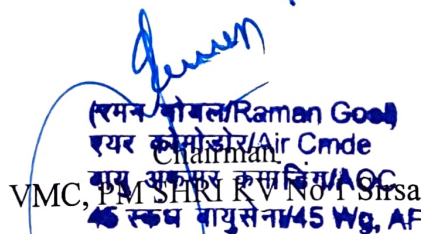 (रमन गोयल/Raman Goel)
एयर कोमोडोर/Air Cmde
Chairman
वायु अफसर कमांडिंग/AOC
VMC, PM SHRI KV No 1 Sirsa
45 स्कंध वायुसेना/45 Wg, AF